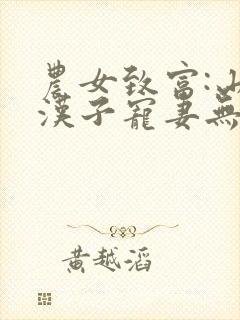 農女致富:山
漢子寵妻無
黃越滔